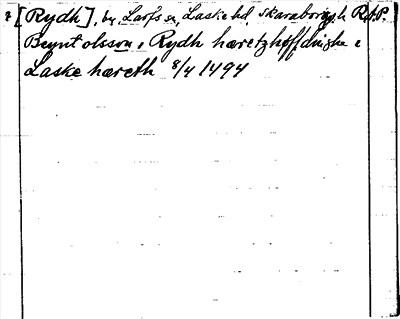 ? [Rydh], by, Larfs sn, Laske hd, Skaraborgs l. RAP.
Beynt olsson i Rydh hæretzhøffdinghe i
Laske hæreth 8/4 1494